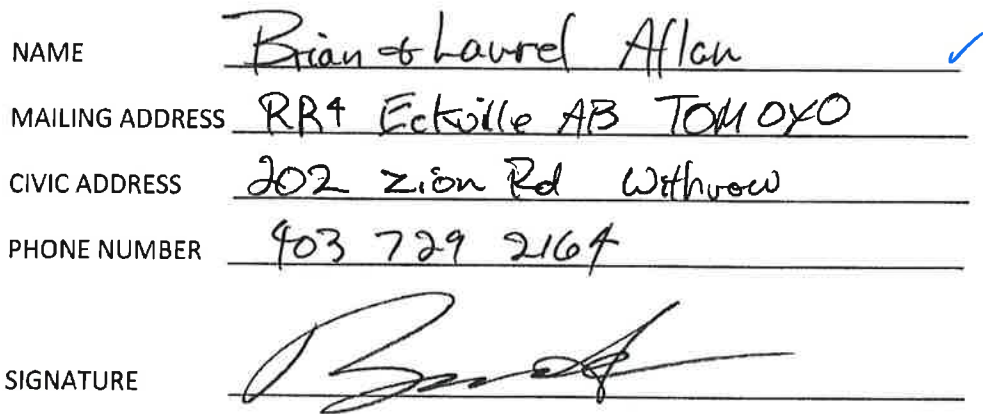 NAME Brian & Laurel Allan
MAILING ADDRESS RR4 Eckville AB T0M 0X0
CIVIC ADDRESS 202 Zion Rd Withrow
PHONE NUMBER 403 729 2164
SIGNATURE